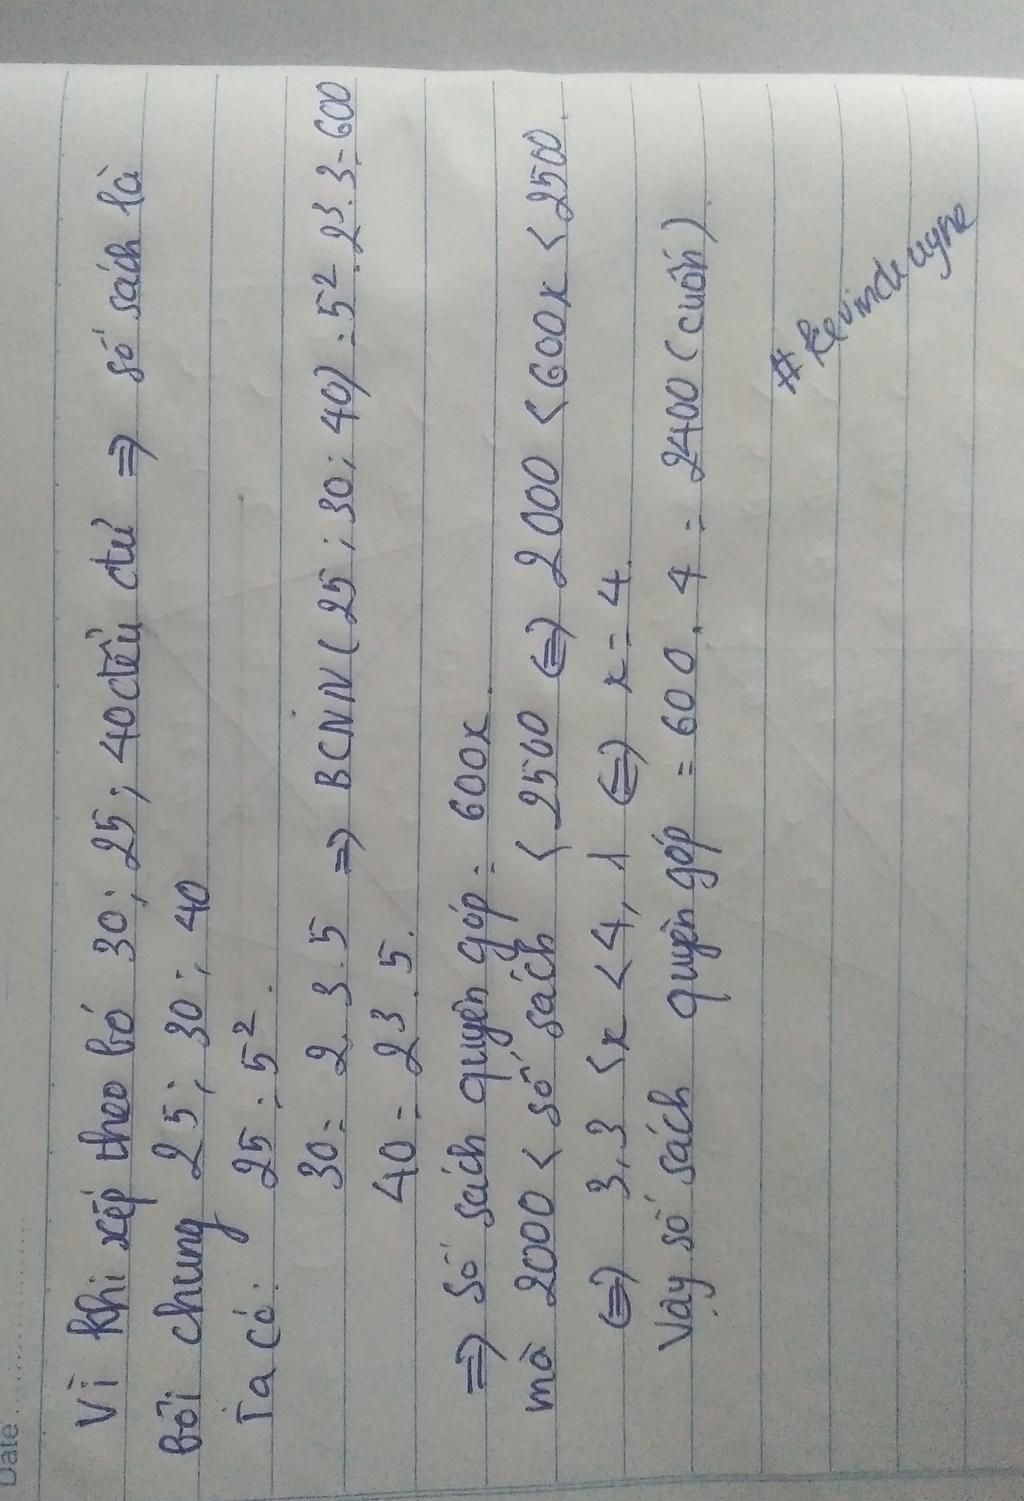 Date
Vì khi xếp theo bó 30; 25; 40 đều đủ => số sách là
bội chung 25; 30; 40
Ta có: 25 = 5².
30 = 2.3.5 => BCNN(25; 30; 40) = 5².2³.3 = 600
40 = 2³.5.
=> số sách quyên góp = 600x.
mà 2000 < số sách < 2500 <=> 2000 < 600x < 2500.
<=> 3,3 < x < 4,1 <=> x = 4.
Vậy số sách quyên góp = 600.4 = 2400 (cuốn)